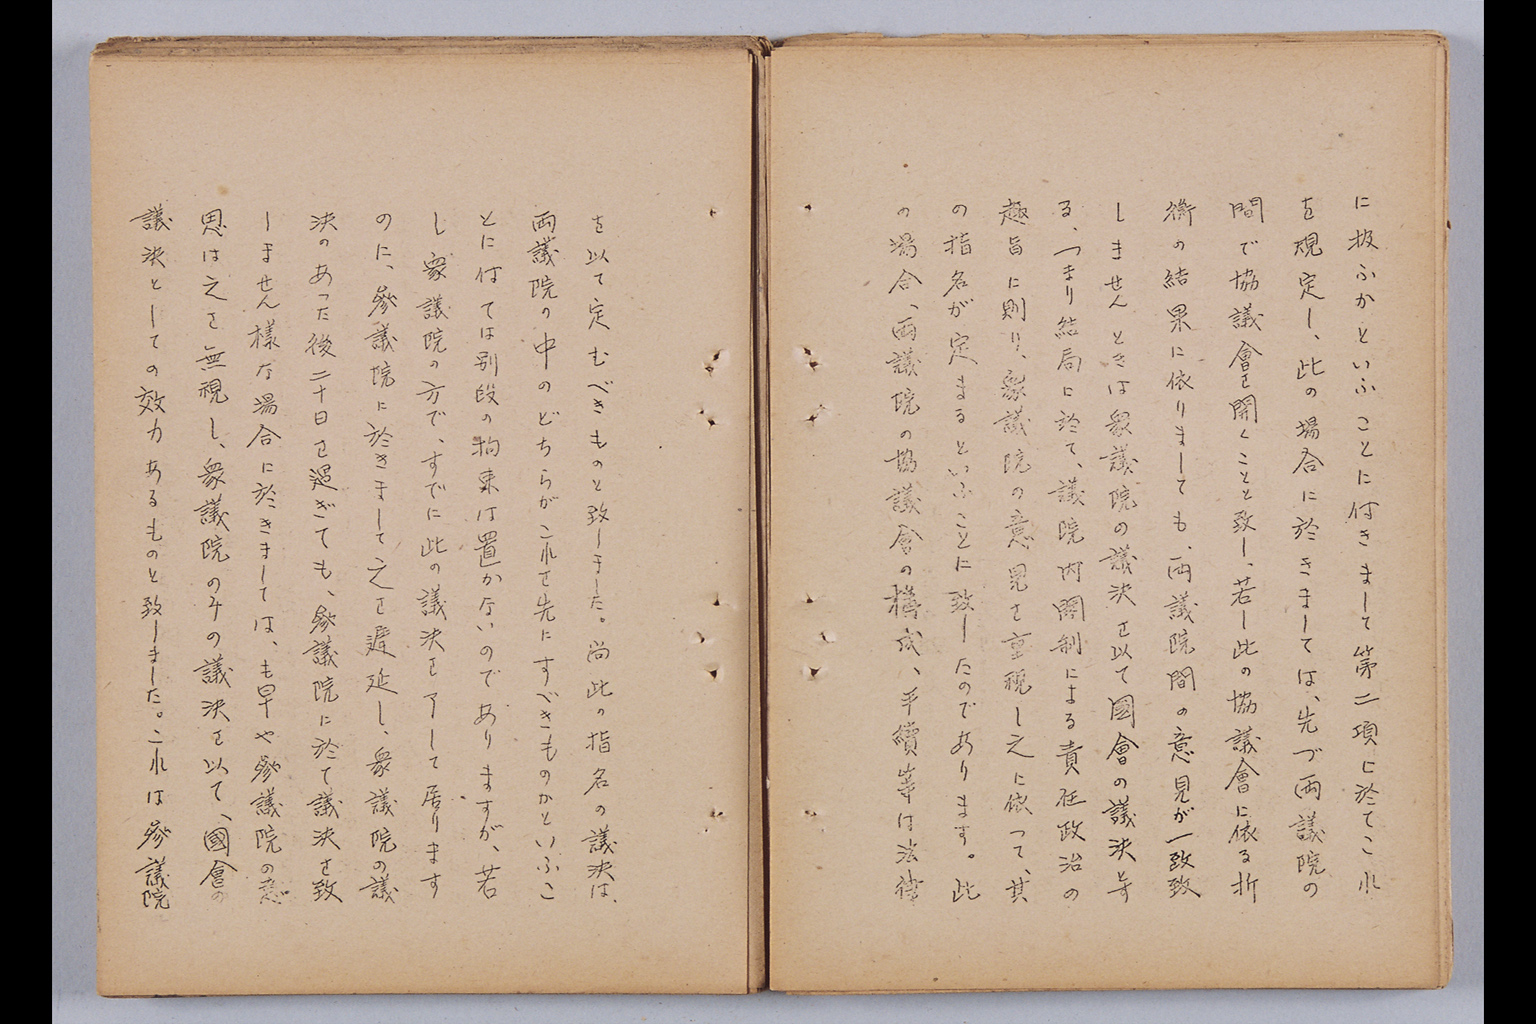 に扱ふかといふことに付きまして第二項に於てこれ
を規定し、此の場合に於きましては、先づ両議院の
間で協議會を開くことと致し、若し此の協議會に依る折
衝の結果に依りましても、両議院間の意見が一致致
しませんときは衆議院の議決を以て國會の議決とす
る、つまり結局に於て、議院内閣制による責任政治の
趣旨に則り、衆議院の意見を重視し之に依つて、其
の指名が定まるといふことに致したのであります。此
の場合、両議院の協議會の構成、手續等は法律
を以て定むべきものと致しました。尚此の指名の議決は、
両議院の中のどちらがこれを先にすべきものかといふこ
とに付ては別段の拘束は置かないのでありますが、若
し衆議院の方で、すでに此の議決を了して居ります
のに、参議院に於きまして之を遅延し、衆議院の議
決のあつた後二十日を過ぎても、参議院に於て議決を致
しません様な場合に於きましては、も早や参議院の意
思は之を無視し、衆議院のみの議決を以て、國會の
議決としての效力あるものと致しました。これは参議院